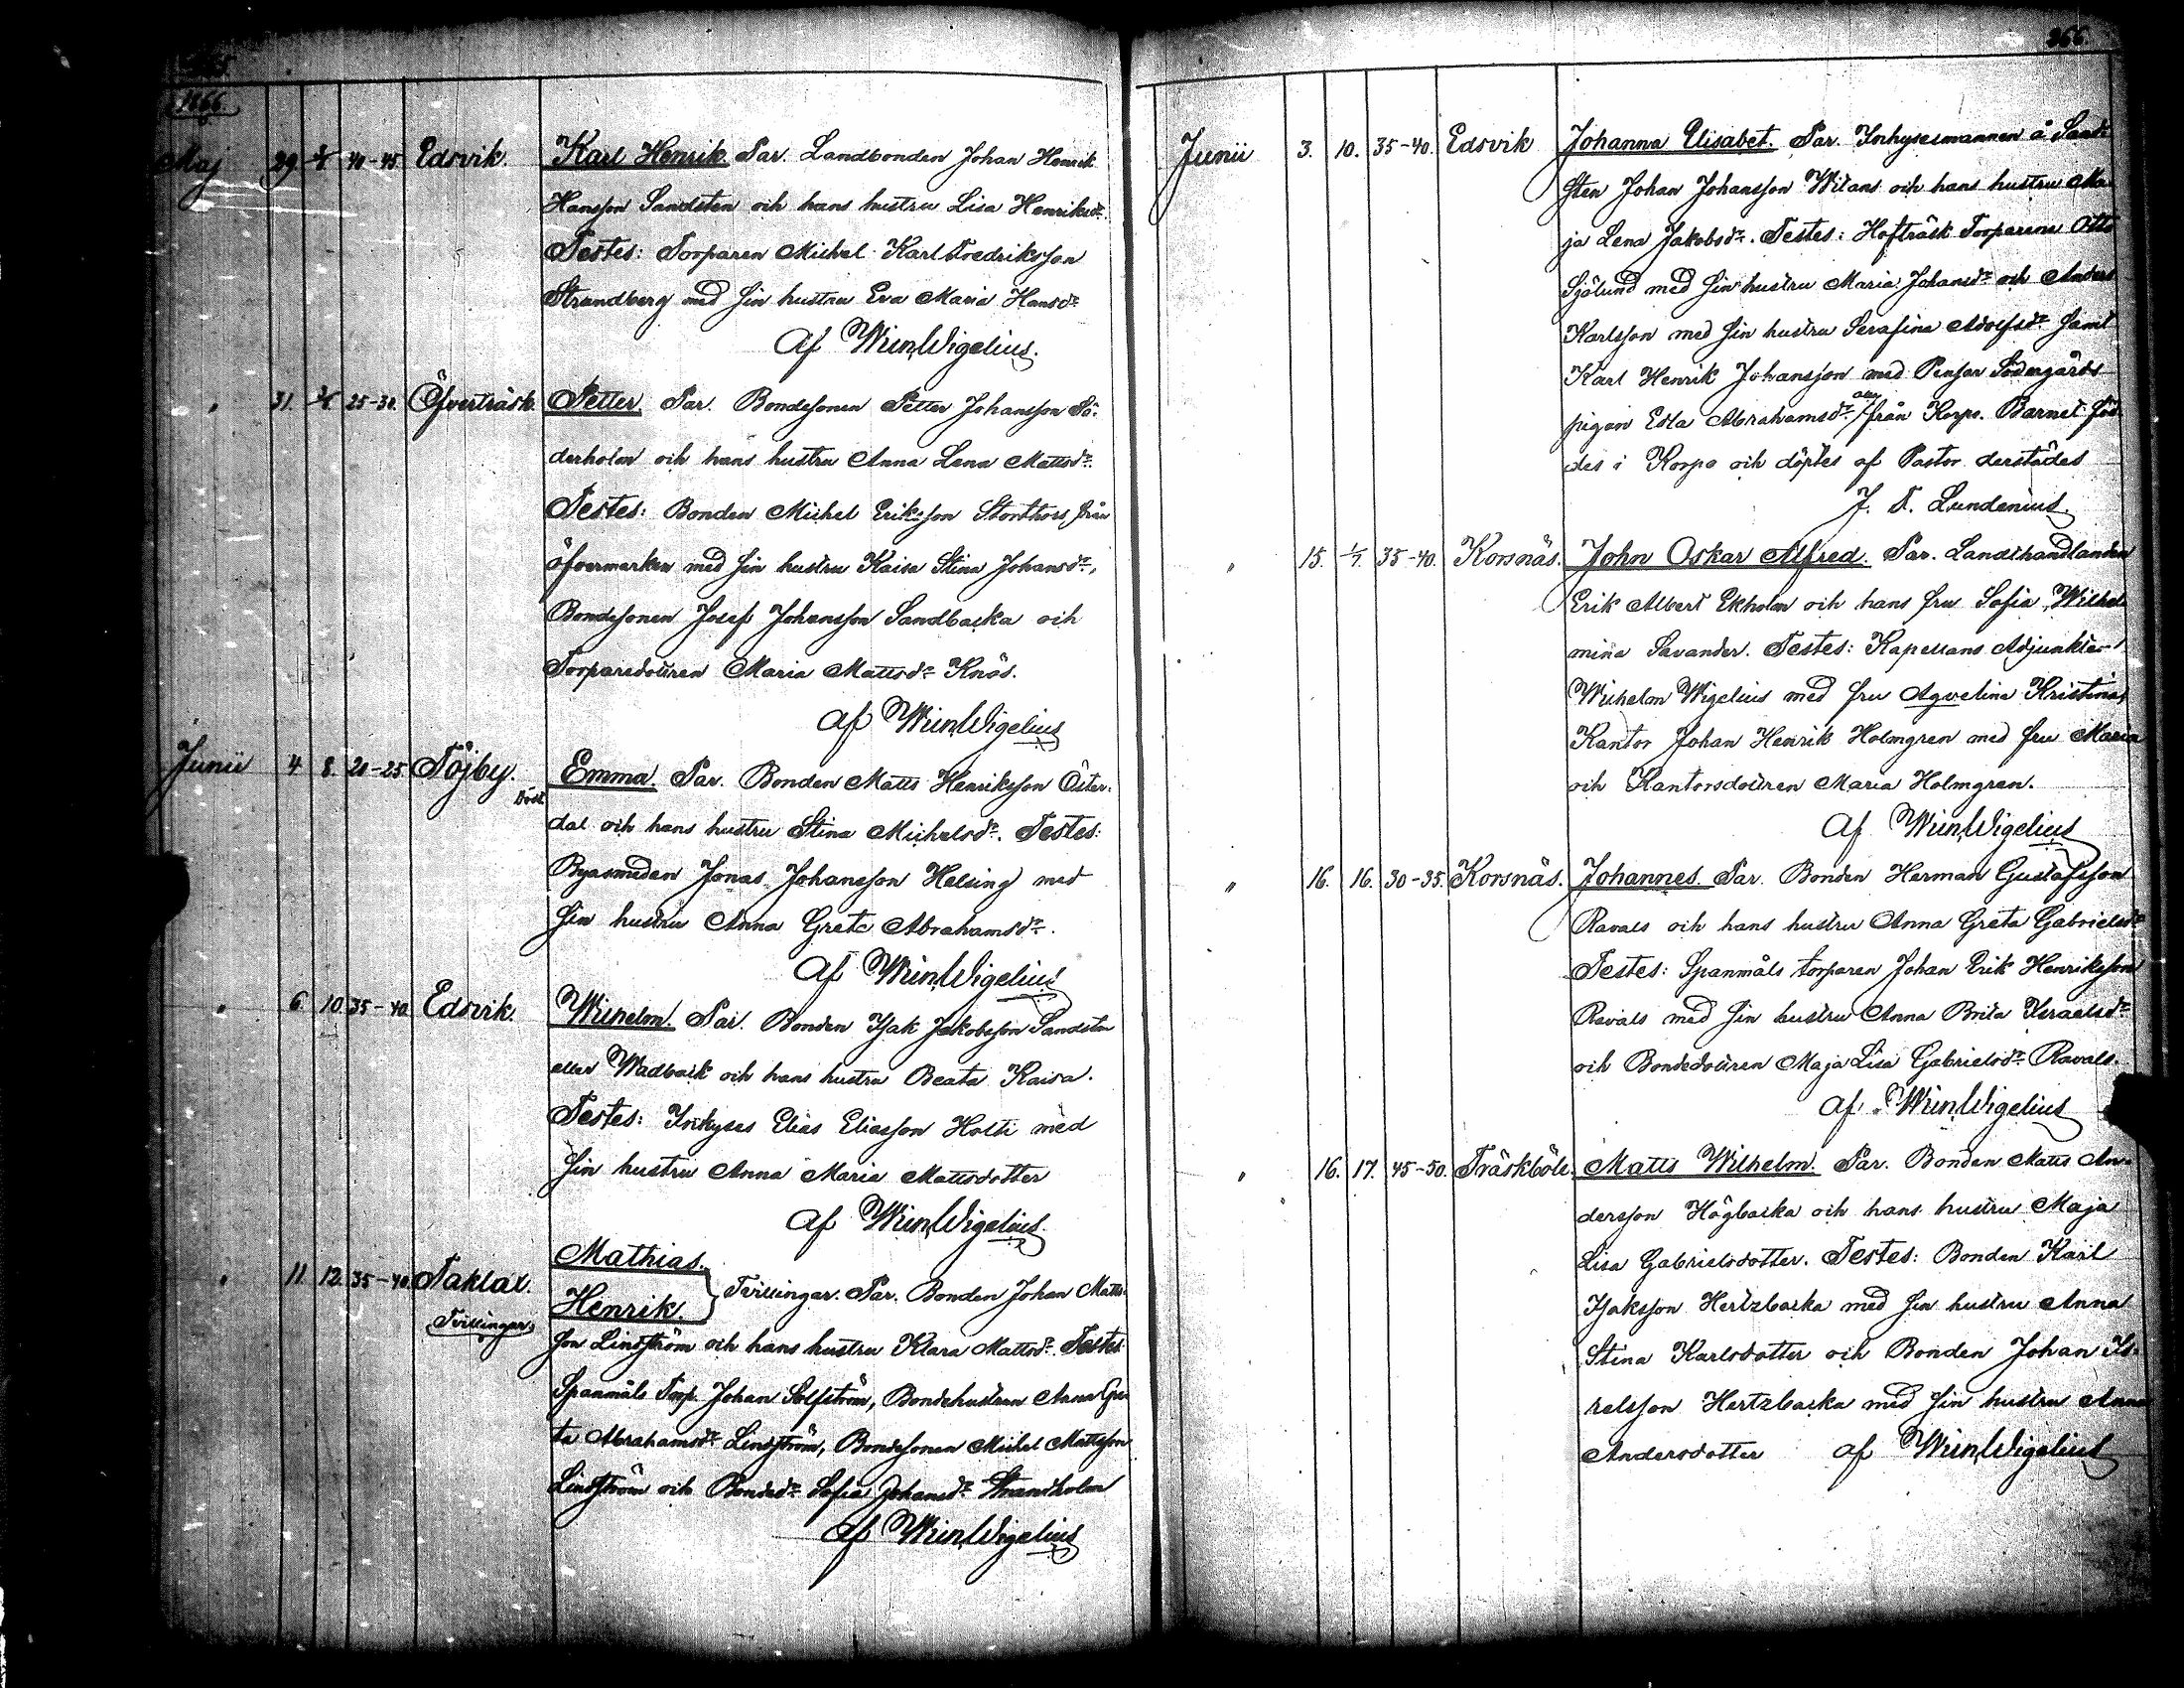 1866.
Maj 29. 40-45 Edsvik. Karl Henrik. Par. Landbonden Johan Henrik
Hansson Sandsten och hans hustru Lisa Henriksdr.
Testes: Torparen Michel Karl Fredriksson
Strandberg med sin hustru Eva Maria Hansdr
Af Wilh Wigelius.
" 31. 25-30. Öfverträsk Petter. Par. Bondesonen Petter Johansson Sö-
derholm och hans hustru Anna Lena Mattsdr.
Testes: Bonden Michel Eriksson Storthors från
öfvermarken med sin hustru Kaisa Stina Johansdr,
Bondesonen Josef Johansson Sandbacka och
Torparedottren Maria Mattsdr Knös.
af Wilh Wigelius
Junii 4 8. 20-25 Töjby. Emma. Par. Bonden Matts Henriksson Öster-
död.
dal och hans hustru Stina Michelsdr. Testes:
Byasmeden Jonas Johansson Helsing med
sin hustru Anna Greta Abrahamsdr.
af Wilh Wigelius
" 6 10 35-40 Edsvik. Wilhelm. Par. Bonden Isak Jakobsson Sandsten
eller Wadback och hans hustru Beata Kaisa.
Testes: Inhyses Elias Eliasson Holti med
sin hustru Anna Maria Mattsdotter
af Wilh Wigelius
Mathias.
" 11. 12. 35-40. Taklax. Henrik. Tvillingar. Par. Bonden Johan Matts-
Tvillingar
son Lindström och hans hustru Klara Mattsdr. Testes:
Spanmåls Torp. Johan Solfström, Bondehustrun Anna Gre-
ta Abrahamsdr Lindström, Bondesonen Michel Mattsson
Lindström och Bondedr Sofia Johansdr Strandholm
af Wilh Wigelius
266.
Junii 3. 10. 35-40. Edsvik Johanna Elisabet. Par. Inhysesmannen å Sand-
sten Johan Johansson Wilans och hans hustru Ma-
ja Lena Jakobsdr. Testes: Hofträsk Torparene Otto
Sjölund med sin hustru Maria Johansdr och Anders
Karlsson med sin hustru Serafina Adolfsdr samt
Karl Henrik Johansson med Södergårds
pigan Edla Abrahamsdr alla från Korpo. Barnet föd-
des i Korpo och döptes af Pastor derstädes
J. T. Lundenius.
" 15. 1/7. 35-40. Korsnäs. John Oskar Alfred. Par. Landthandlanden
Erik Albert Ekholm och hans fru Sofia Wilhel-
mina Savander. Testes: Kapellans Adjunkten
Wilhelm Wigelius med fru Agvelina Kristina,
Kantor Johan Henrik Holmgren med fru Maria
och Kantorsdottren Maria Holmgren.
Af Wilh Wigelius
" 16. 16. 30-35. Korsnäs. Johannes. Par. Bonden Herman Gustafsson
Ravals och hans hustru Anna Greta Gabrielsdr
Testes: Spanmåls torparen Johan Erik Henriksson
Ravals med sin hustru Anna Brita Israelsdr
och Bondedottren Maja Lisa Gabrielsdr Ravals.
af Wilh Wigelius
" 16. 17. 45-50. Träskböle. Matts Wilhelm. Par. Bonden Matts An-
dersson Högbacka och hans hustru Maja
Lisa Gabrielsdotter. Testes: Bonden Karl
Isaksson Hertzbacka med sin hustru Anna
Stina Karlsdotter och Bonden Johan Is-
relsson Hertzbacka med sin hustru Anna
Andersdotter af Wilh Wigelius